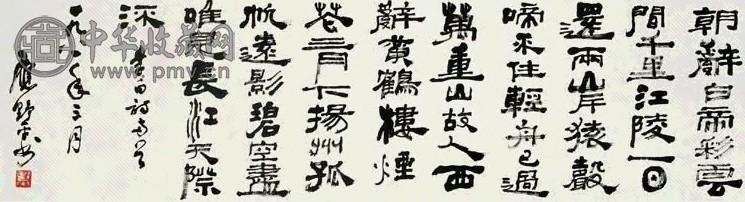 朝辭白帝彩雲
間千里江陵一日
還兩岸猿聲
啼不住輕舟已過
萬重山故人西
辭黃鶴樓煙
花三月下揚州孤
帆遠影碧空盡
唯見長江天際
流
李白詩兩首
一九八年三月
應野平書
中华收藏网
www.pmv.cn